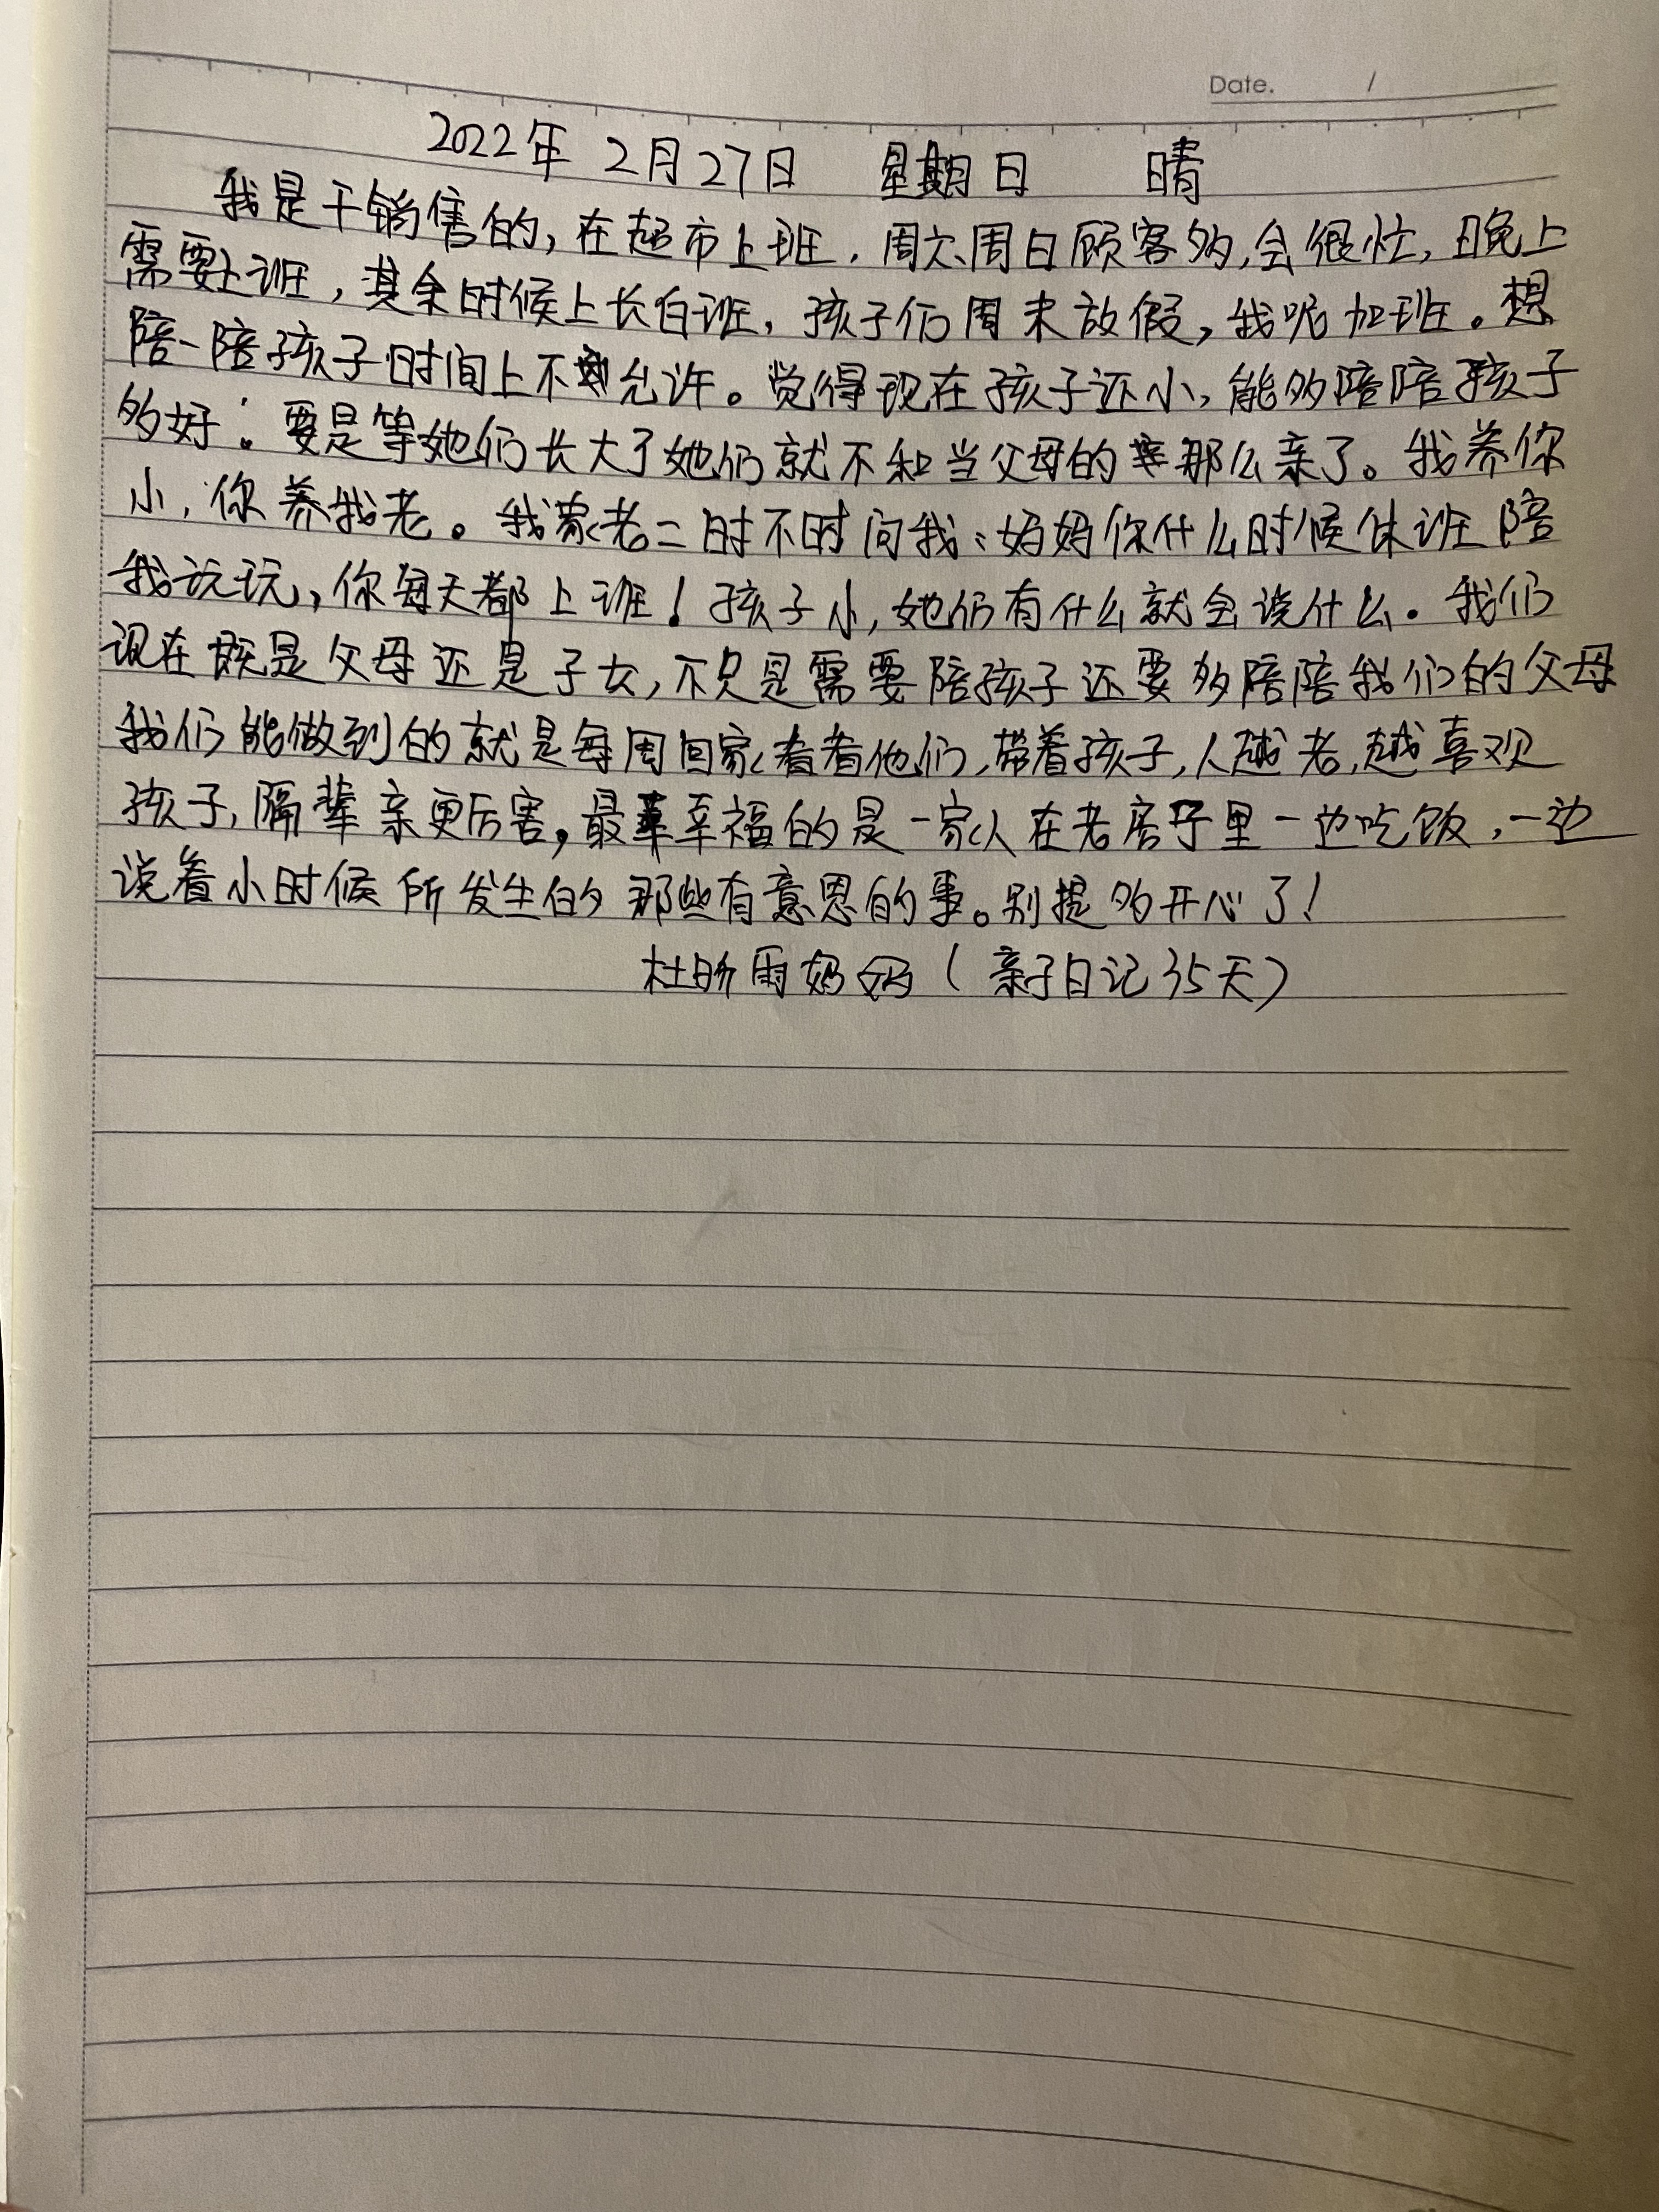 Date. /
2022年 2月27日 星期日 晴
我是干销售的,在超市上班.周六周日顾客多,会很忙,晚上
需要上班,其余时候上长白班,孩子们周末放假,我呢加班。想
陪一陪孩子时间上不允许。觉得现在孩子还小,能多陪陪孩子
多好!要是等她们长大了她们就不和当父母的那么亲了。我养你
小,你养我老。我家老二时不时问我:妈妈你什么时候休班陪
我玩玩,你每天都上班!孩子小,她们有什么就会说什么.我们
现在既是父母还是子女,不只是需要陪孩子还要多陪陪我们的父母
我们能做到的就是每周回家看看他们,带着孩子,人越老,越喜欢
孩子,隔辈亲更厉害,最幸福的是一家人在老房子里一边吃饭,一边
说着小时候所发生的那些有意思的事。别提多开心了!
杜昕雨妈妈(亲子日记35天)